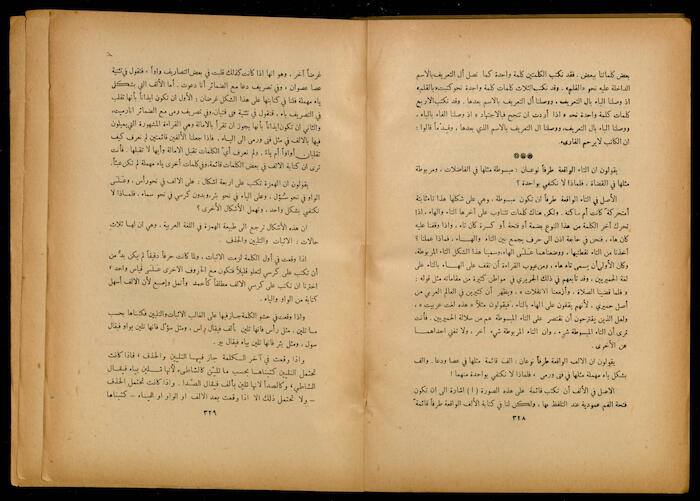 بعض كلماتنا ببعض . فقد نكتب الكلمتين كلمة واحدة كما نصل أل التعريف بالاسم
الداخلة عليه نحو «القلم» . وقد نكتب الثلاث كلمات كلمة واحدة نحو كتبت «بالقلم»
اذ وصلنا الباء بأل التعريف، ووصلنا أل التعريف بالاسم بعدها . وقد نكتب الاربع
كلمات كلمة واحدة نحو » اذا أردت ان تنجح فبالاجتهاد » اذ وصلنا الفاء بالباء ،
ووصلنا الباء بأل التعريف، ووصلنا أل التعريف بالاسم الذي بعدها . وقديماً قالوا :
ان الكاتب لايرحم القارىء.
***
يقولون ان التاء الواقعة طرفاً نوعان : مبسوطة مثلها في الفاضلات ، ومربوطة
مثلها في القضاة ، فلماذا لا نكتفي بواحدة ؟
الأصل في التاء الواقعة طرفاً ان تكون مبسوطة ، وهي على شكلها هذا تاء ثابتة
متحركة كانت أم ساكنة . ولكن هناك كلمات تتناوب على آخرها التاء والهاء ، اذا
تحرك آخر الكلمة من هذا النوع بضمة أو فتحة أو كسرة كان تاء ، واذا وقفنا عليه
كان هاء ، فنحن في حاجة اذن الى حرف يجمع بين التاء والهاء ، فماذا عملنا ؟
أخذنا من التاء نقطتيها ، ووضعناهما على الهاء، وسمينا هذا الشكل التاء المربوطة.
وكان الأولى أن يسمى تاء هاء ، ومن عيوب القراءة أن نقف على الهاء بالتاء على
لغة الحميريين ، وقد تابعهم في ذلك الحريري في مواطن كثيرة من مقاماته مثل قوله :
« فلما قضينا الصلاة ، وأزمعنا الانفلات » . ويظهر أن كثيرين في العالم العربي من
أصل حميري ، لأنهم يقفون على الهاء بالتاء ، فيقولون مثلاً « هذه لغت عربيت »
ولعل الذين يقترحون أن نقتصر على التاء المبسوطة هم من سلالة الحميريين . فأنت
ترى أن التاء المبسوطة شيء ، وان التاء المربوطة شيء آخر ، ولا تغني احداهما
عن الأخرى .
يقولون ان الالف الواقعة طرفاً نوعان : الف قائمة مثلها في عصا ودعا . والف
بشكل ياء مهملة مثلها في فتى ورمى . فلماذا لا نكتفي بواحدة منهما ؟
الاصل في الألف أن تكتب قائمة على هذه الصورة ( ا ) اشارة الى ان تكون
فتحة الفم عمودية عند التلفظ بها ، ولكن لنا في كتابة الألف الواقعة طرفاً قائمة
٣٢٨
غرضاً آخر ، وهو انها اذا كانت كذلك قلبت في بعض التصاريف واواً ، فنقول في تثنية
عصا عصوان ، وفي تصريف دعا مع الضمائر أنا دعوت . أما الألف التي بشكل
ياء مهملة فلنا في كتابتها على هذا الشكل غرضان : الأول ان تكون ايذاناً بأنها تقلب
في التصريف ياء ، فنقول في تثنية فتى فتيان، وفي تصريف رمى مع الضمائر انا رميت،
والثاني ان تكون ايذاناً بأنها يجوز ان تقرأ بالامالة وهي القراءة المشهورة التي يميلون
فيها بالالف في مثل فتى ورمى الى الياء . فاذا جعلنا الألفين قائمتين لم نعرف كيف
تقلبان أواواً أم ياء ، ولم نعرف أي الكلمات تقبل الامالة وأيها لا تقبلها . فأنت
ترى ان كتابة الالف في بعض الكلمات قائمة، وفي كلمات أخرى ياء مهملة لم تكن عبثاً.
يقولون ان الهمزة تكتب على اربعة اشكال : على الالف في نحو رأس ، وعلى
الواو في نحو سؤل ، وعلى الياء في نحو بئر، وبدون كرسي في نحو سماء ، فلماذا لا
نكتفي بشكل واحد ، ونهمل الأشكال الأخرى ؟
ان هذه الأشكال ترجع الى طبيعة الهمزة في اللغة العربية ، وهي ان لها ثلاث
حالات : الاثبات والتليين والحذف
اذا وقعت في أول الكلمة لزمت الاثبات ، ولما كانت حرفاً دقيقاً لم يكن بد من
أن تكتب على كرسي لتعلو قليلاً فتكون مع الحروف الاخرى على قياس واحد ،
اخترنا ان تكتب على كرسي الالف مطلقاً كأحمد وأنمل وإصبع لأن الالف أسهل
كتابة من الواو والياء .
واذا وقعت في حشو الكلمة جاز فيها على الغالب الاثبات والتليين فكتبناها بحسب
ما تلين ، مثل رأس فانها تلين بألف فيقال راس ، ومثل سؤل فانها تلين بواو فيقال
سول ، ومثل بئر فانها تلين بياء فيقال بير .
واذا وقعت في آخر الكلمة جاز فيها التليين والحذف ، فاذا كانت
تحتمل التليين كتبناها بحسب ما تلين كالشاطىء، لأنها تلين بياء فيقال
الشاطي، وكالصدأ لانها تلين بألف فيقال الصدا . واذا كانت تحتمل الحذف
– ولا تحتمل ذلك الا اذا وقعت بعد الالف او الواو او الياء – كتبناها
٣٢٩